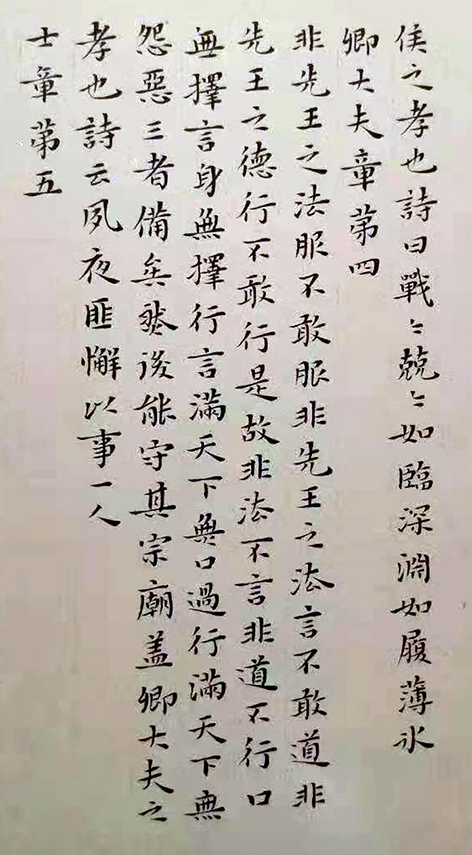 侯之孝也詩曰戰〻兢〻如臨深淵如履薄氷
卿大夫章第四
非先王之法服不敢服非先王之法言不敢道非
先王之德行不敢行是故非法不言非道不行口
無擇言身無擇行言滿天下無口過行滿天下無
怨惡三者備矣然後能守其宗廟蓋卿大夫之
孝也詩云夙夜匪懈以事一人
士章第五